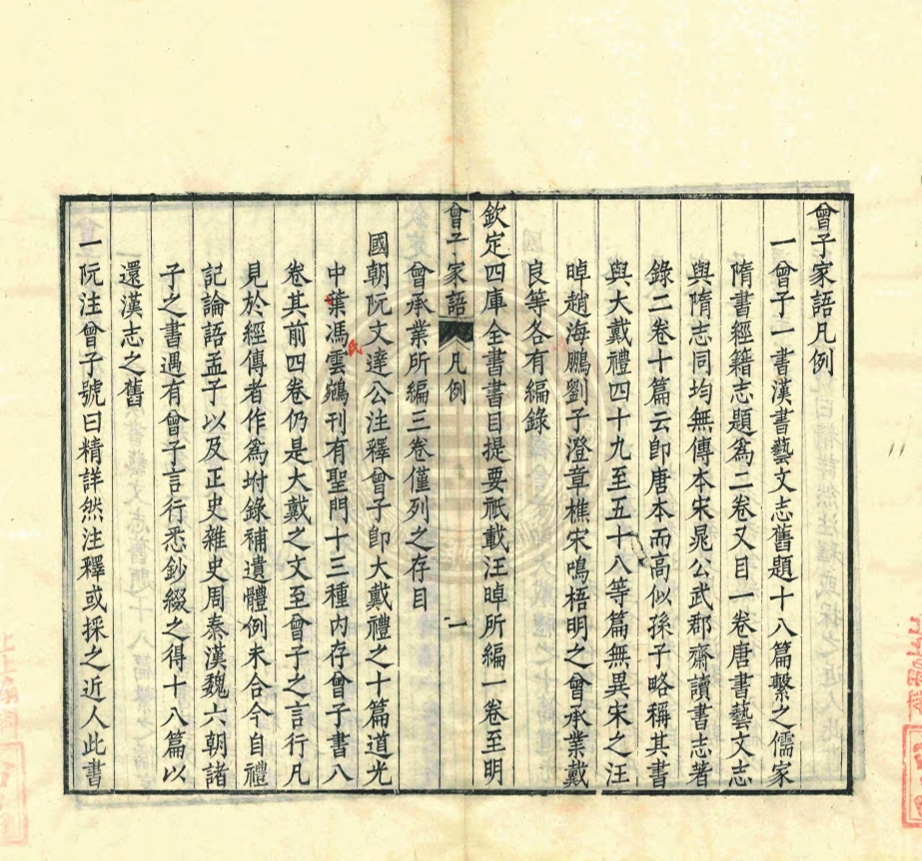 曾子家語凡例
一曾子一書漢書藝文志舊題十八篇繫之儒家
隋書經籍志題爲二卷又目一卷唐書藝文志
與隋志同均無傳本宋晁公武郡齋讀書志著
錄二卷十篇云卽唐本而高似孫子略稱其書
與大戴禮四十九至五十八等篇無異宋之汪
晫趙海鵬劉子澄章樵宋鳴梧明之曾承業戴
良等各有編錄
欽定四庫全書書目提要祇載汪晫所編一卷至明
曾子家語 凡例 一
曾承業所編三卷僅列之存目
國朝阮文達公注釋曾子卽大戴禮之十篇道光
中葉馮雲鵷刊有聖門十三種内存曾子書八
氏
卷其前四卷仍是大戴之文至曾子之言行凡
見於經傳者作爲坿錄補遺體例未合今自禮
記論語孟子以及正史雜史周秦漢魏六朝諸
子之書遇有曾子言行悉鈔綴之得十八篇以
還漢志之舊
一阮注曾子號曰精詳然注釋或採之近人此書